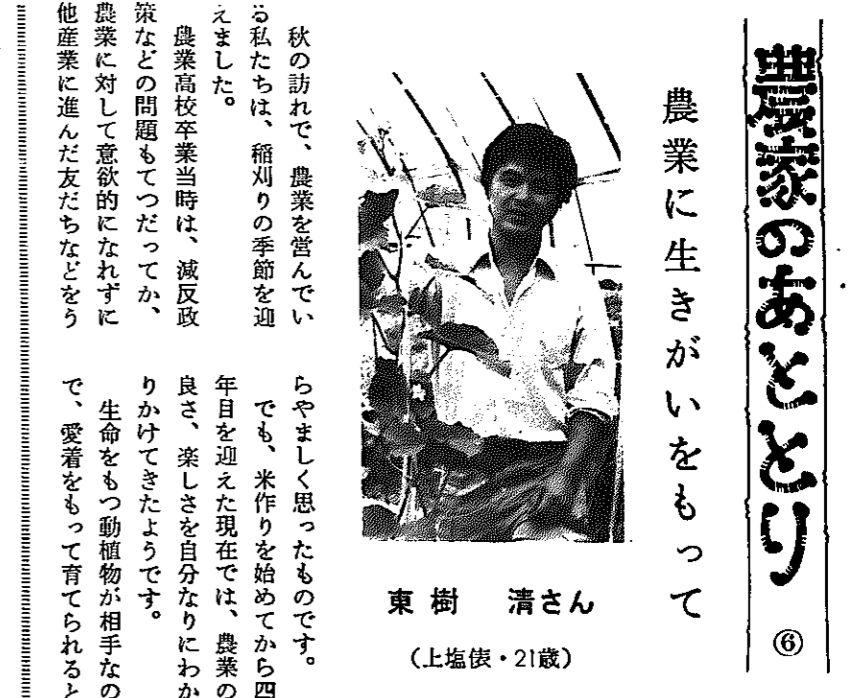 農家のあととり
⑥
農業に生きがいをもって
東樹 清さん
(上塩俵・21歳)
秋の訪れで、農業を営んでい
る私たちは、稲刈りの季節を迎
えました。
農業高校卒業当時は、減反政
策などの問題もてつだってか、
農業に対して意欲的になれずに
他産業に進んだ友だちなどをう
らやましく思ったものです。
でも、米作りを始めてから四
年目を迎えた現在では、農業の
良さ、楽しさを自分なりにわか
りかけてきたようです。
生命をもつ動植物が相手なの
で、愛着をもって育てられると